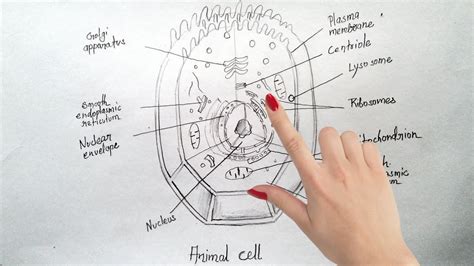 Golgi
apparatus
Smooth
endoplasmic
reticulum
Nuclear
envelope
Nucleus
Plasma
membrane
Centriole
Lysosome
Ribosomes
itochondrion
Animal cell